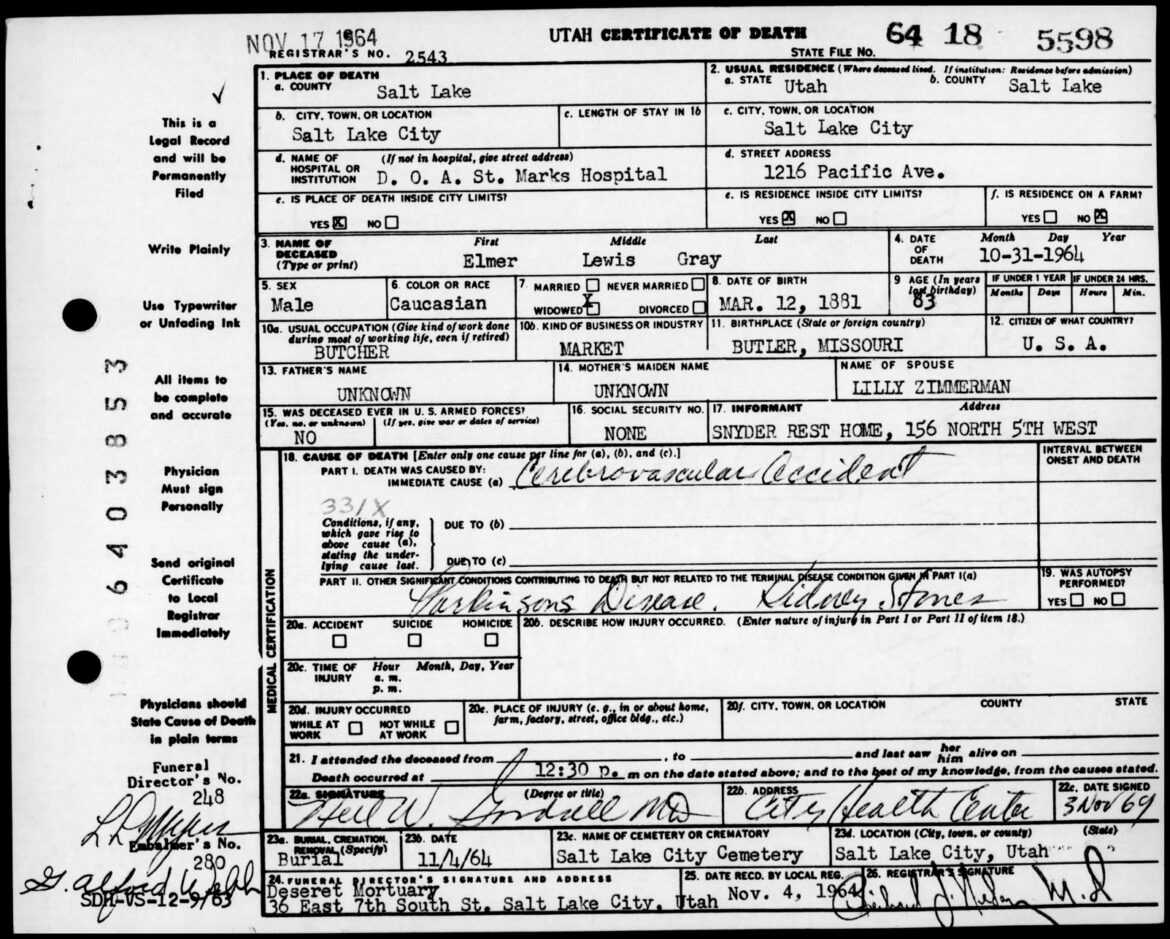 NOV 17 1964
REGISTRAR'S NO. 2543
UTAH CERTIFICATE OF DEATH
STATE FILE NO. 64 18 5598
1. PLACE OF DEATH
a. COUNTY Salt Lake
2. USUAL RESIDENCE (Where deceased lived. If institution: Residence before admission)
a. STATE Utah b. COUNTY Salt Lake
b. CITY, TOWN, OR LOCATION Salt Lake City
c. LENGTH OF STAY IN 1b
c. CITY, TOWN, OR LOCATION Salt Lake City
d. NAME OF HOSPITAL OR INSTITUTION (If not in hospital, give street address) D. O. A. St. Marks Hospital
d. STREET ADDRESS 1216 Pacific Ave.
e. IS PLACE OF DEATH INSIDE CITY LIMITS?
YES X NO
e. IS RESIDENCE INSIDE CITY LIMITS?
YES X NO
f. IS RESIDENCE ON A FARM?
YES NO X
3. NAME OF DECEASED (Type or print) First Middle Last
Elmer Lewis Gray
4. DATE OF DEATH Month Day Year
10-31-1964
5. SEX Male
6. COLOR OR RACE Caucasian
7. MARRIED NEVER MARRIED
WIDOWED X DIVORCED
8. DATE OF BIRTH MAR. 12, 1881
9 AGE (In years last birthday) 83
IF UNDER 1 YEAR Months Days
IF UNDER 24 HRS. Hours Min.
10a. USUAL OCCUPATION (Give kind of work done during most of working life, even if retired) BUTCHER
10b. KIND OF BUSINESS OR INDUSTRY MARKET
11. BIRTHPLACE (State or foreign country) BUTLER, MISSOURI
12. CITIZEN OF WHAT COUNTRY? U. S. A.
13. FATHER'S NAME UNKNOWN
14. MOTHER'S MAIDEN NAME UNKNOWN
NAME OF SPOUSE LILLY ZIMMERMAN
15. WAS DECEASED EVER IN U. S. ARMED FORCES?
(Yes, no, or unknown) (If yes, give war or dates of service)
NO
16. SOCIAL SECURITY NO. NONE
17. INFORMANT Address
SNYDER REST HOME, 156 NORTH 5TH WEST
18. CAUSE OF DEATH [Enter only one cause per line for (a), (b), and (c).]
INTERVAL BETWEEN ONSET AND DEATH
PART I. DEATH WAS CAUSED BY:
IMMEDIATE CAUSE (a) Cerebrovascular Accident
331X
Conditions, if any, which gave rise to above cause (a), stating the underlying cause last.
DUE TO (b)
DUE TO (c)
PART II. OTHER SIGNIFICANT CONDITIONS CONTRIBUTING TO DEATH BUT NOT RELATED TO THE TERMINAL DISEASE CONDITION GIVEN IN PART I(a)
Parkinsons Disease. Kidney Stones
19. WAS AUTOPSY PERFORMED?
YES NO
20a. ACCIDENT SUICIDE HOMICIDE
20b. DESCRIBE HOW INJURY OCCURRED. (Enter nature of injury in Part I or Part II of item 18.)
20c. TIME OF INJURY Hour Month, Day, Year
a. m.
p. m.
20d. INJURY OCCURRED
WHILE AT WORK NOT WHILE AT WORK
20e. PLACE OF INJURY (e. g., in or about home, farm, factory, street, office bldg., etc.)
20f. CITY, TOWN, OR LOCATION COUNTY STATE
21. I attended the deceased from , to and last saw her him alive on
Death occurred at 12:30 p. m on the date stated above; and to the best of my knowledge, from the causes stated.
22a. SIGNATURE (Degree or title) W. MD
22b. ADDRESS City Health Center
22c. DATE SIGNED 3 Nov 64
23a. BURIAL, CREMATION, REMOVAL (Specify) Burial
23b. DATE 11/4/64
23c. NAME OF CEMETERY OR CREMATORY Salt Lake City Cemetery
23d. LOCATION (City, town, or county) (State)
Salt Lake City, Utah " "
24. FUNERAL DIRECTOR'S SIGNATURE AND ADDRESS
Deseret Mortuary
36 East 7th South St. Salt Lake City, Utah
25. DATE RECD. BY LOCAL REG. Nov. 4, 1964
26. REGISTRAR'S SIGNATURE
M.D
MEDICAL CERTIFICATION
This is a
Legal Record
and will be
Permanently
Filed
Write Plainly
Use Typewriter
or Unfading Ink
All items to
be complete
and accurate
Physician
Must sign
Personally
Send original
Certificate
to Local
Registrar
Immediately
Physicians should
State Cause of Death
in plain terms
Funeral
Director's No.
248
Embalmer's No.
280
SDH-VS-12-9/63